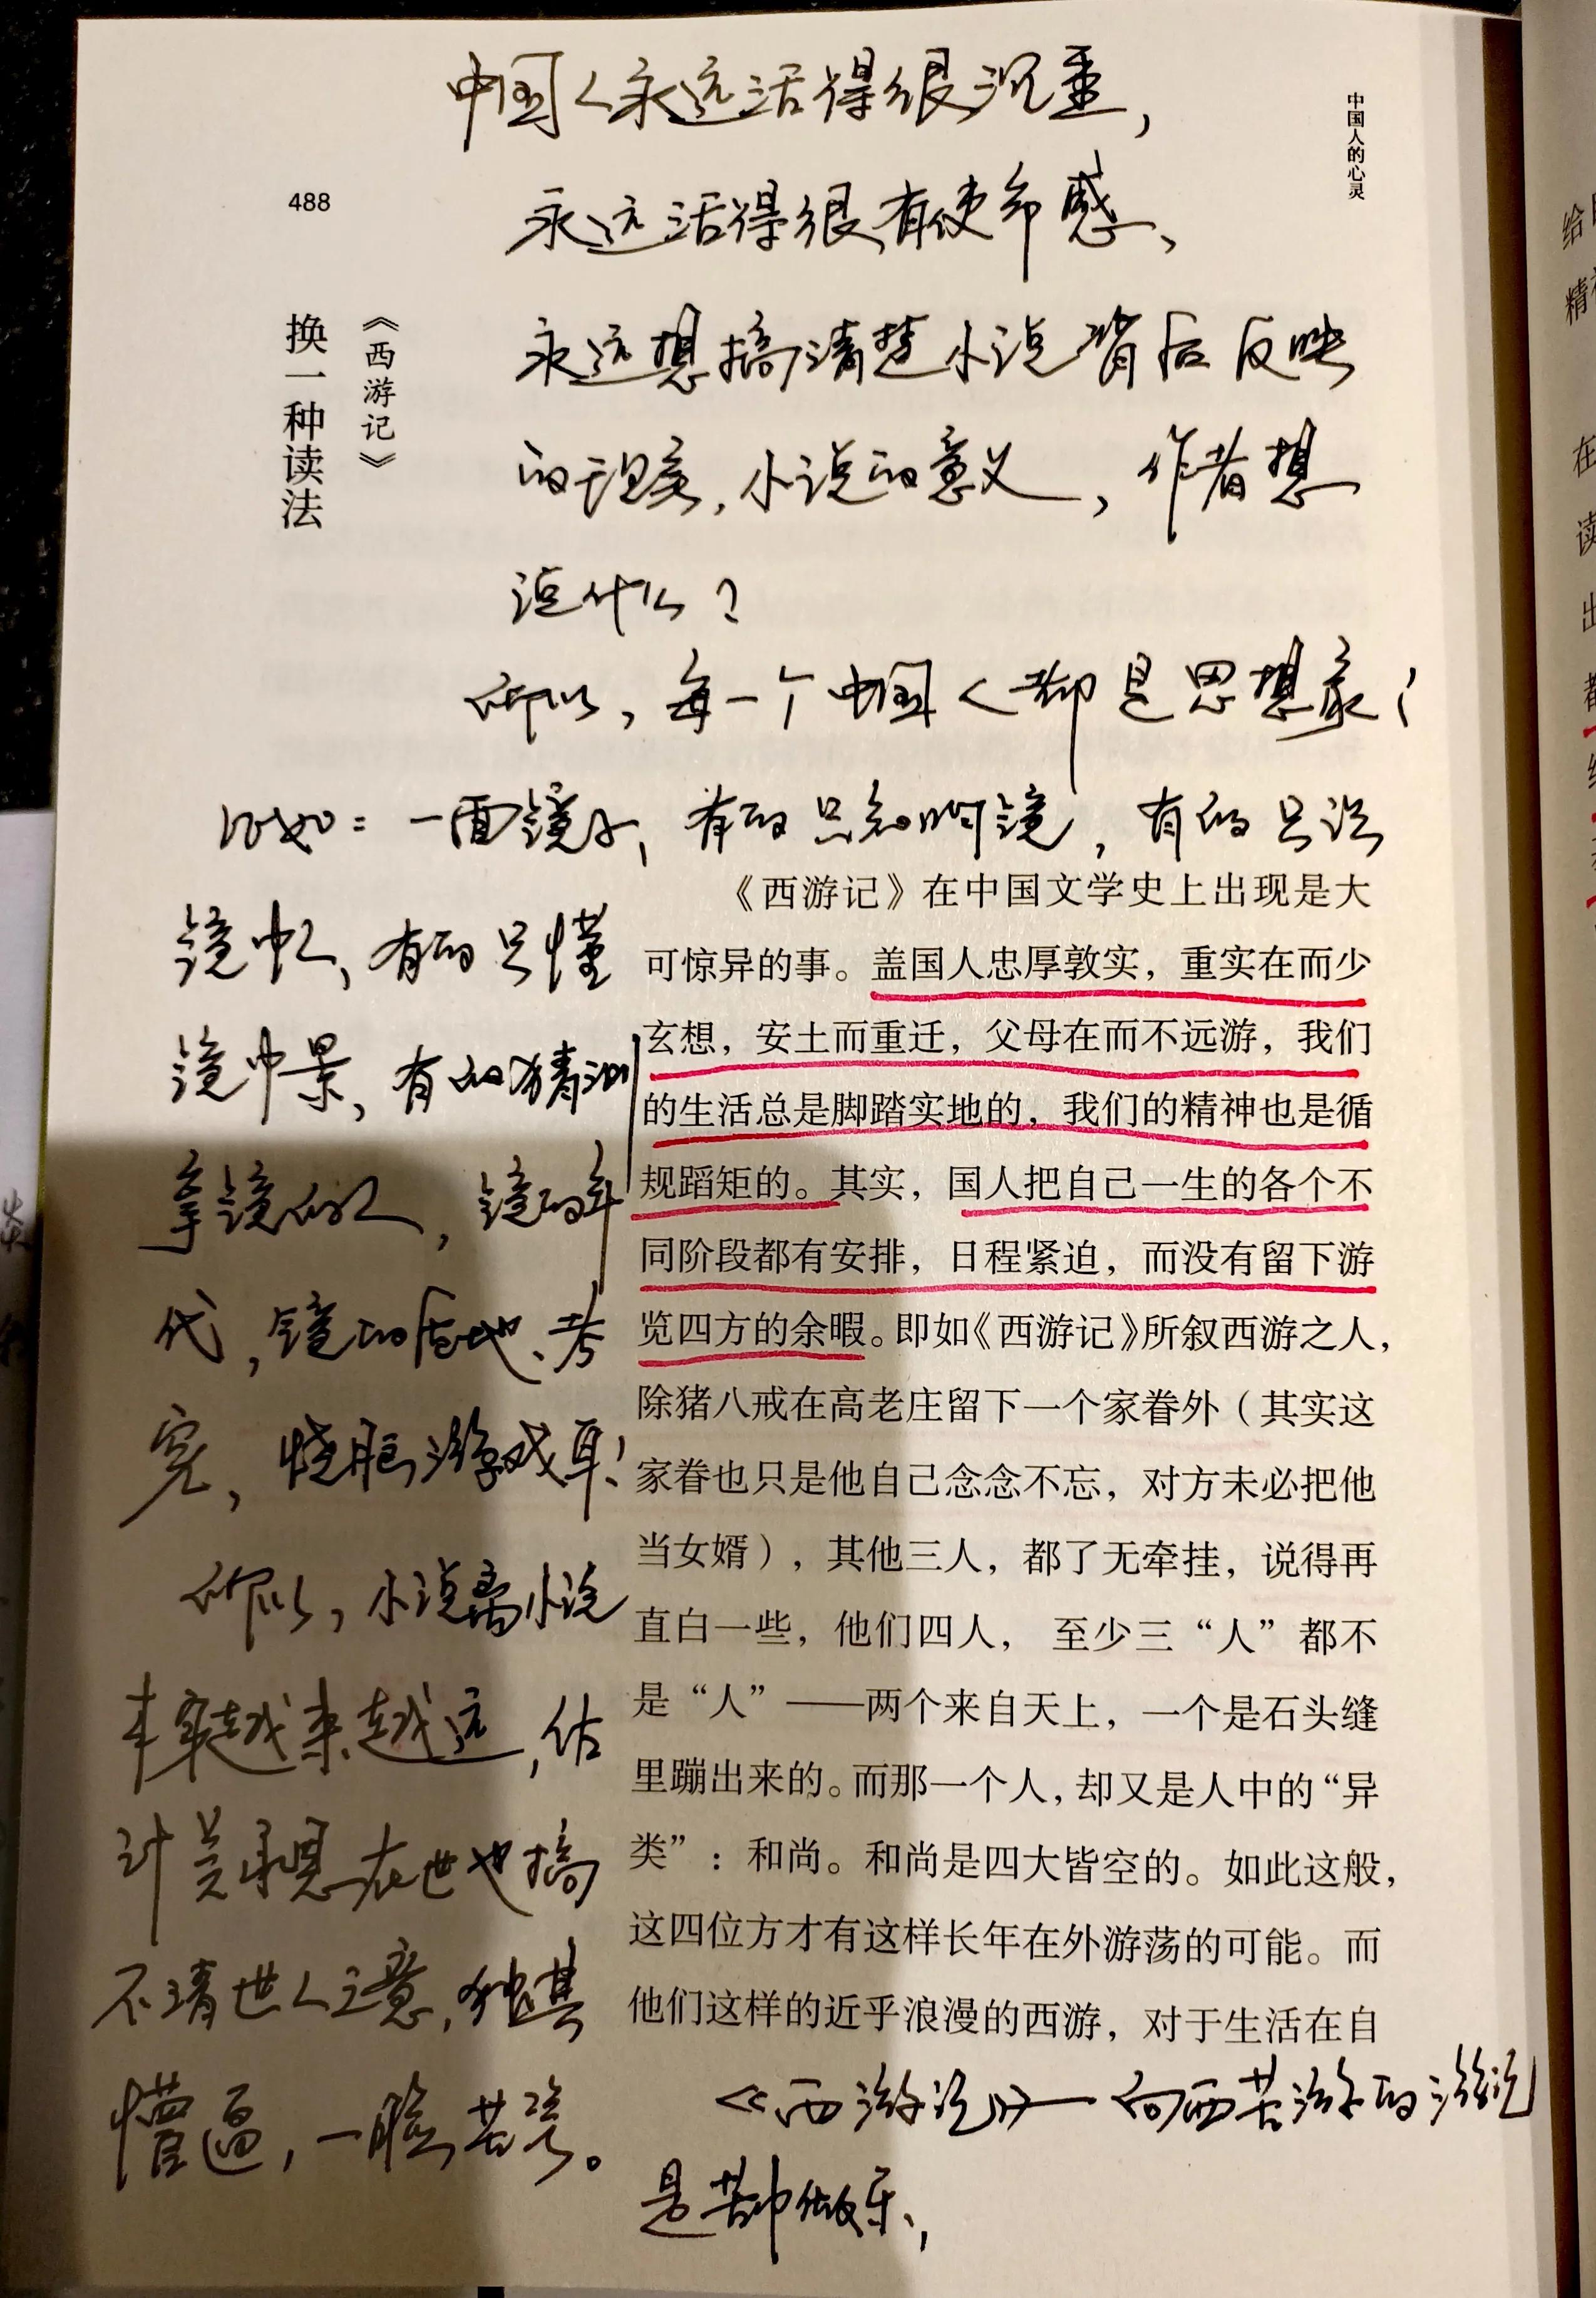 中国人永远活得很沉重，
中国人的心灵
488
永远活得很有使命感、
《西游记》
换一种读法
永远想搞清楚小说背后反映
的现实，小说的意义，作者想
说什么？
所以，每一个中国人都是思想家！
比如：一面镜子，有的只知明镜，有的只说
镜中人，有的只懂
镜中景，有的猜测
拿镜的人，镜的年
代，镜的产地、考
究，烧脑游戏耳！
所以，小说离小说
本来越来越远，估
计吴承恩在世也搞
不清世人之意，独其
懵逼，一脸苦笑。
《西游记》在中国文学史上出现是大
可惊异的事。盖国人忠厚敦实，重实在而少
玄想，安土而重迁，父母在而不远游，我们
的生活总是脚踏实地的，我们的精神也是循
规蹈矩的。其实，国人把自己一生的各个不
同阶段都有安排，日程紧迫，而没有留下游
览四方的余暇。即如《西游记》所叙西游之人，
除猪八戒在高老庄留下一个家眷外（其实这
家眷也只是他自己念念不忘，对方未必把他
当女婿），其他三人，都了无牵挂，说得再
直白一些，他们四人， 至少三“人”都不
是“人”——两个来自天上，一个是石头缝
里蹦出来的。而那一个人，却又是人中的“异
类”：和尚。和尚是四大皆空的。如此这般，
这四位方才有这样长年在外游荡的可能。而
他们这样的近乎浪漫的西游，对于生活在自
《西游记》—向西苦游的游记
是苦中做乐、，
给
精
在
读
出
都